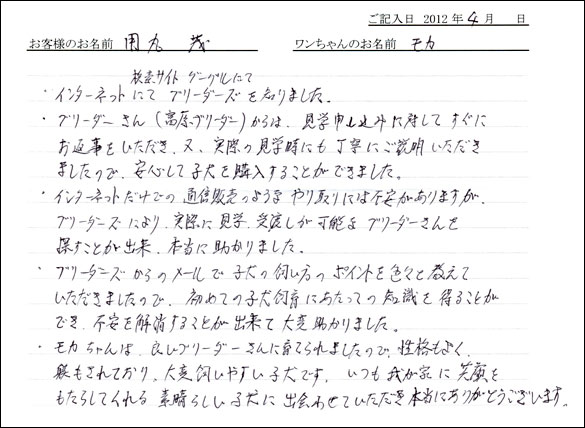 ご記入日 2012 年 4 月　　日
お客様のお名前 用丸　茂　　ワンちゃんのお名前 モカ
検索サイト グーグルにて
・インターネットにて ブリーダーズを知りました。
・ブリーダーさん(高原ブリーダー)からは、見学申し込みに対してすぐに
お返事をいただき、又、実際の見学時にも丁寧にご説明いただき
ましたので、安心して子犬を購入することができました。
・インターネットだけでの通信販売のようなやり取りには不安がありますが、
ブリーダーズにより、実際に見学、受渡しが可能なブリーダーさんを
探すことが出来、本当に助かりました。
・ブリーダーズからのメールで子犬の飼い方のポイントを色々と教えて
いただきましたので、初めての子犬飼育にあたっての知識を得ることが
でき、不安を解消することが出来て大変助かりました。
・モカちゃんは、良いブリーダーさんに育てられましたので、性格もよく、
躾もされており、大変飼いやすい子犬です。いつも我が家に笑顔を
もたらしてくれる素晴らしい子犬に出会わせていただき本当にありがとうございます。